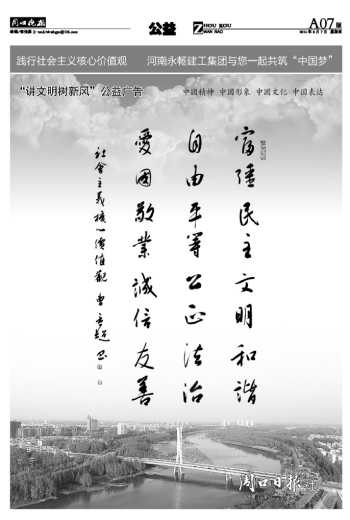 周口晚报
公益
ZHOU KOU
WAN BAO
A07版
践行社会主义核心价值观 河南永畅建工集团与您一起共筑“中国梦”
“讲文明树新风”公益广告
中国精神 中国形象 中国文化 中国表达
富强民主文明和谐
自由平等公正法治
愛國敬業誠信友善
社會主義核心價值觀
周口日报